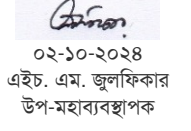 ০২-১০-২০২৪
এইচ. এম. জুলফিকার
উপ-মহাব্যবস্থাপক